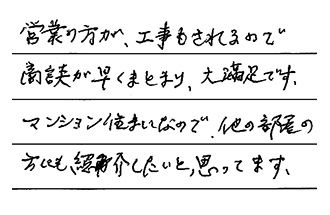 営業の方が、工事もされるので
商談が早くまとまり、大満足です。
マンション住まいなので、他の部屋の
方にも紹介したいと思ってます。